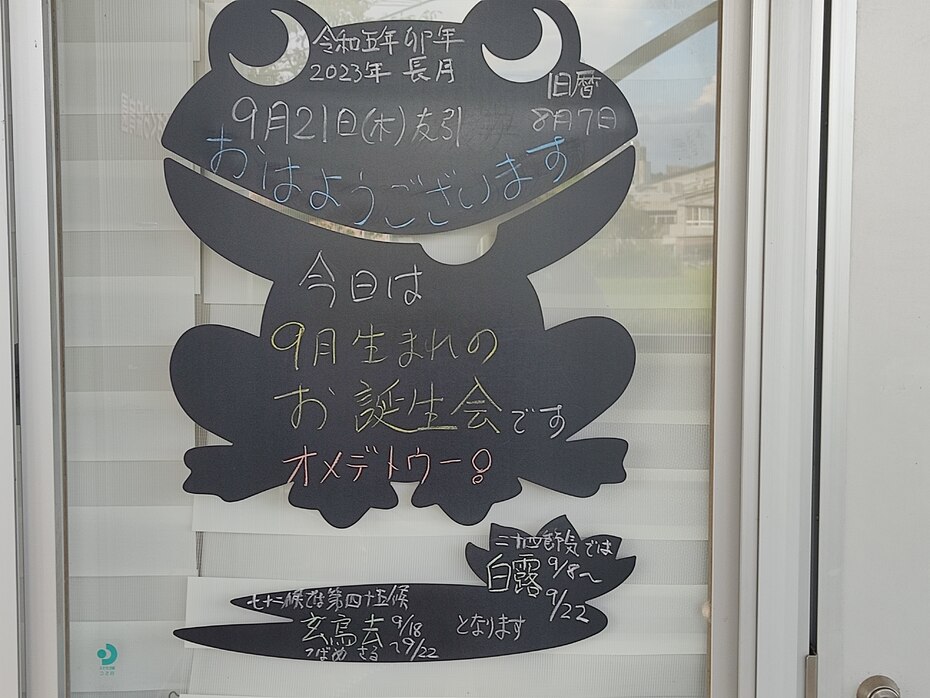 令和五年 卯年
2023年 長月
旧暦
8月7日
9月21日(木)友引
おはようございます
今日は
9月生まれの
お誕生会です
オメデトウー!
二十四節気では
白露 9/8〜
9/22
七十二候では第四十五候
玄鳥去 9/18
つばめ さる 〜9/22
となります